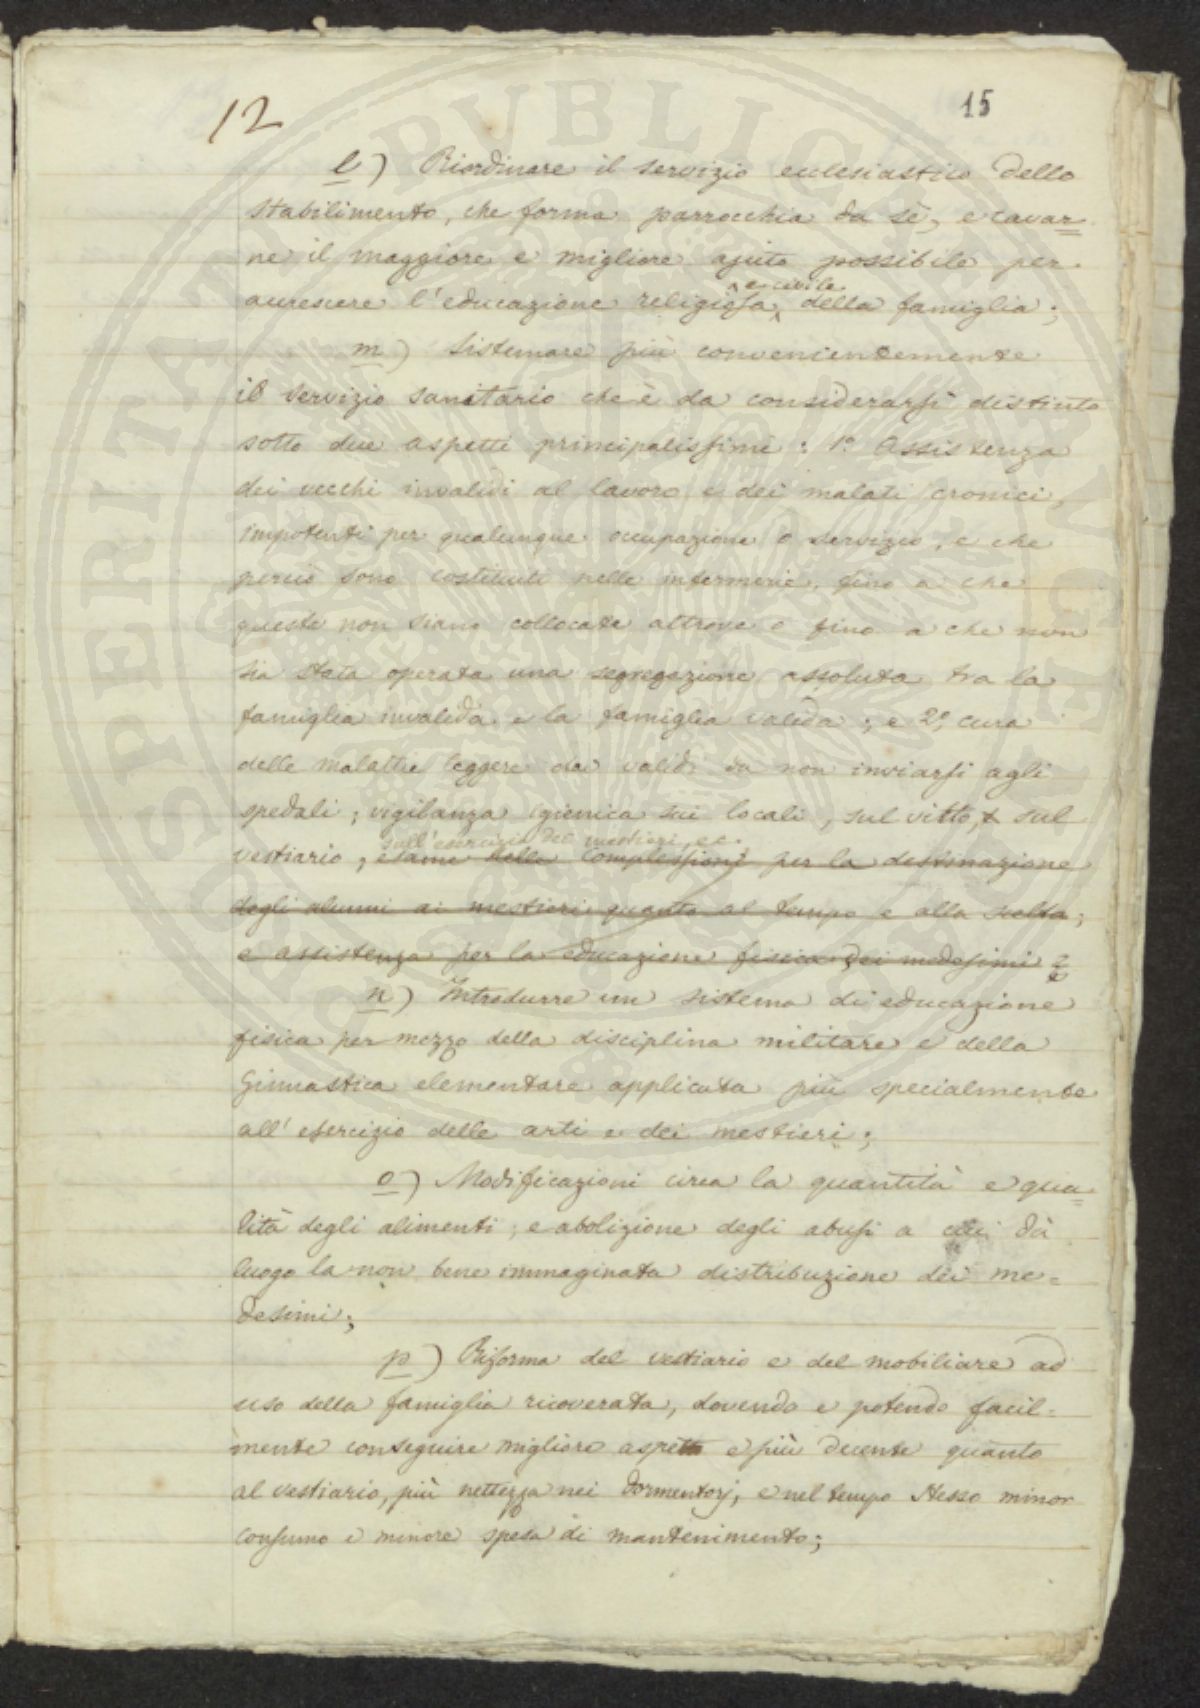 12
15
l) Riordinare il servizio ecclesiastico dello
stabilimento, che forma parrocchia da sè, e cavar=
ne il maggiore e migliore ajuto possibile per
accrescere l'educazione religiosa e civile della famiglia;
m) Sistemare più convenientemente
il servizio sanitario che è da considerarsi distinto
sotto due aspetti principalissimi: 1º Assistenza
dei vecchi invalidi al lavoro e dei malati cronici,
impotenti per qualunque occupazione o servizio, e che
perciò sono costituiti nelle infermerie, fino a che
queste non siano collocate altrove o fino a che non
sia stata operata una segregazione assoluta tra la
famiglia invalida e la famiglia valida; e 2º, cura
delle malattie leggere dei validi da non inviarsi agli
spedali; vigilanza igienica sui locali, sul vitto, e sul
sull'esercizio dei mestieri, ec.
vestiario, esame delle complessioni per la destinazione
degli alunni ai mestieri quanto al tempo e alla scelta;
e assistenza per la educazione fisica dei medesimi;
n) Introdurre un sistema di educazione
fisica per mezzo della disciplina militare e della
Ginnastica elementare applicata più specialmente
all'esercizio delle arti e dei mestieri;
o) Modificazioni circa la quantità e qua=
lità degli alimenti, e abolizione degli abusi a cui dà
luogo la non bene immaginata distribuzione dei me=
desimi;
p) Riforma del vestiario e del mobiliare ad
uso della famiglia ricoverata, dovendo e potendo facil=
mente conseguire migliore aspetto e più decente quanto
al vestiario, più nettezza nei dormentorj, e nel tempo stesso minor
consumo e minore spesa di mantenimento;